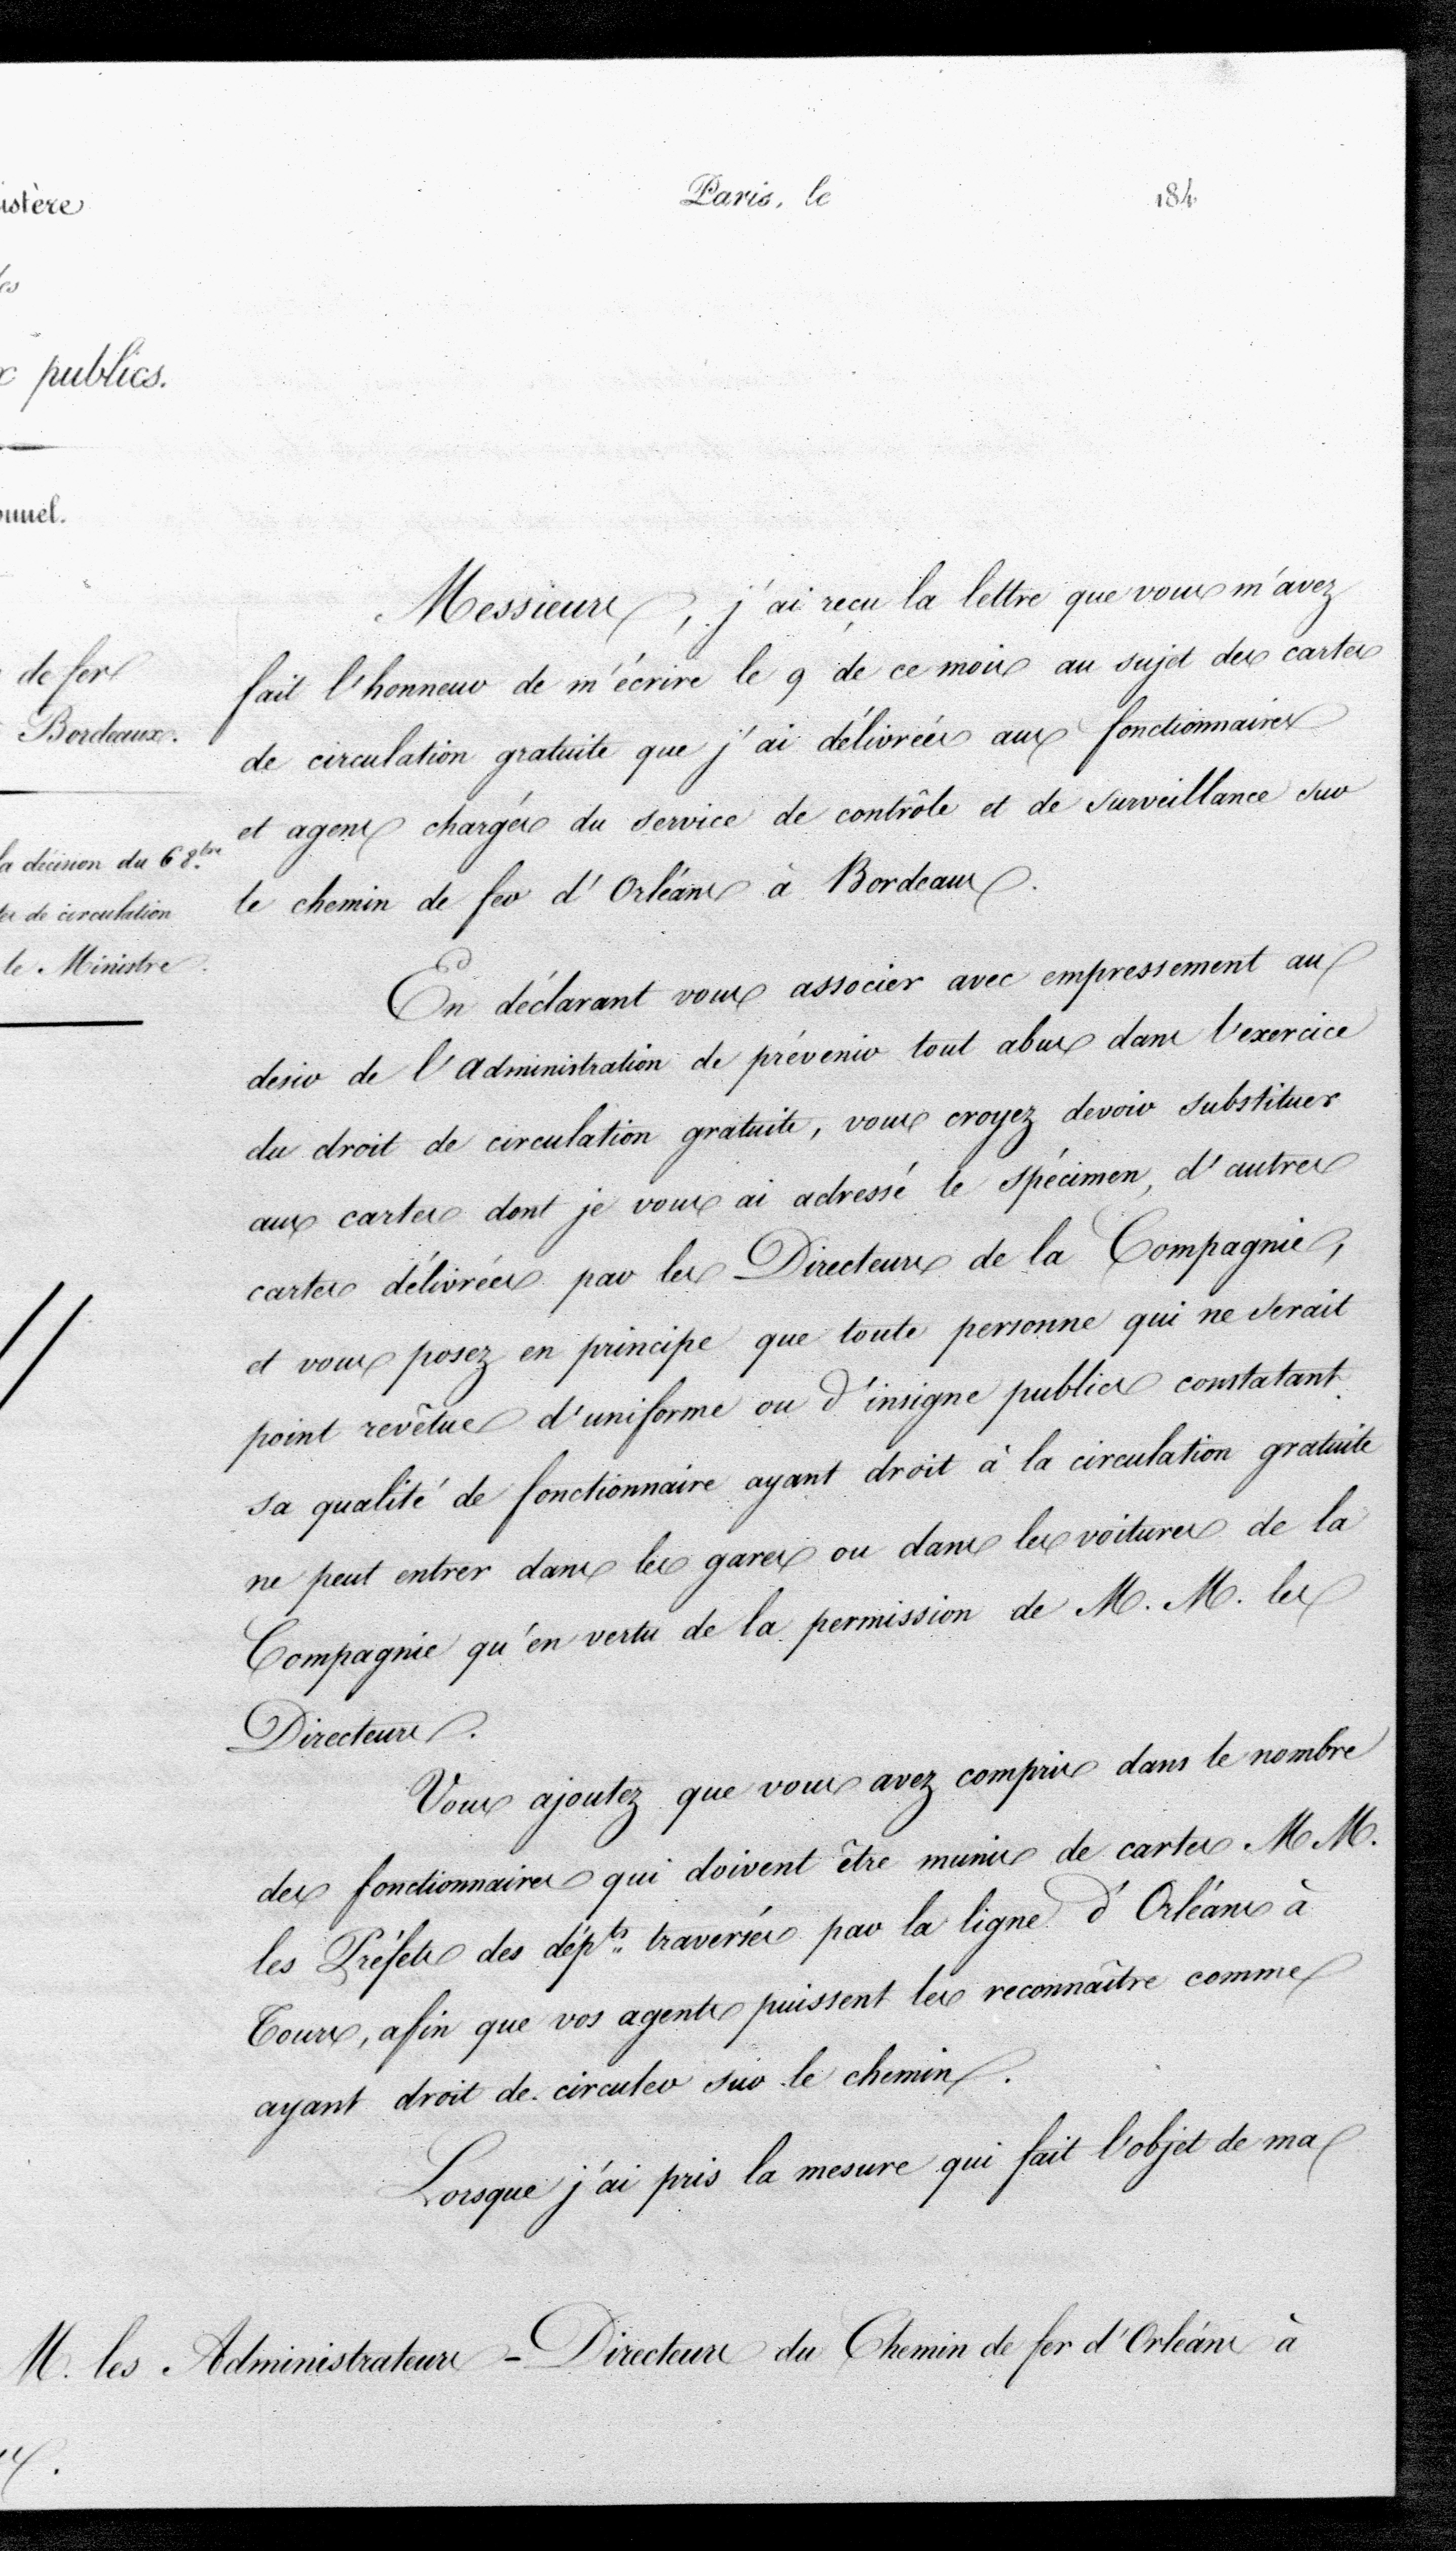 Paris, le 184
istère
es
x publics.
onnel.
de fer
Bordeaux.
la décision du 6 8.bre
tes de circulation
le Ministre.
Messieurs, j'ai reçu la lettre que vous m'avez
fait l'honneur de m'écrire le 9 de ce mois au sujet des cartes
de circulation gratuite que j'ai délivrées aux fonctionnaires
et agens chargés du service de contrôle et de surveillance sur
le chemin de fer d'Orléans à Bordeaux.
En déclarant vous associer avec empressement au
desir de l'administration de prévenir tout abus dans l'exercice
du droit de circulation gratuite, vous croyez devoir substituer
aux cartes dont je vous ai adressé le spécimen, d'autres
cartes délivrées par les Directeurs de la Compagnie,
et vous posez en principe que toute personne qui ne serait
point revêtue d'uniforme ou d'insigne publics constatant
sa qualité de fonctionnaire ayant droit à la circulation gratuite
ne peut entrer dans les gares ou dans les voitures de la
Compagnie qu'en vertu de la permission de M. M. les
Directeurs.
Vous ajoutez que vous avez compris dans le nombre
des fonctionnaires qui doivent être munis de cartes M M.
les Préfets des dép.ts traversés par la ligne d'Orléans à
Tours, afin que vos agents puissent les reconnaître comme
ayant droit de circuler sur le chemin.
Lorsque j'ai pris la mesure qui fait l'objet de ma
M. les Administrateurs-Directeurs du Chemin de fer d'Orléans à